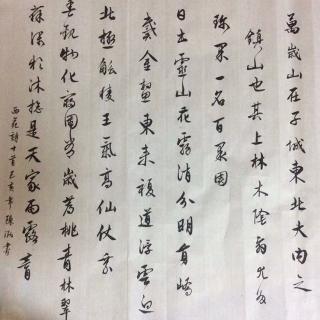 萬歲山在子城東北大內之
鎮山也其上林木陰翳尤多
珍果一名百果園
日出靈山花霧消分明員嶠
戴金鰲東來複道浮雲迥
北極觚稜王氣高仙仗乘
春觀物化寢園常歲薦桃青林翠
葆深於沐總是天家雨露膏
西苑詩十首己亥年陳淑書